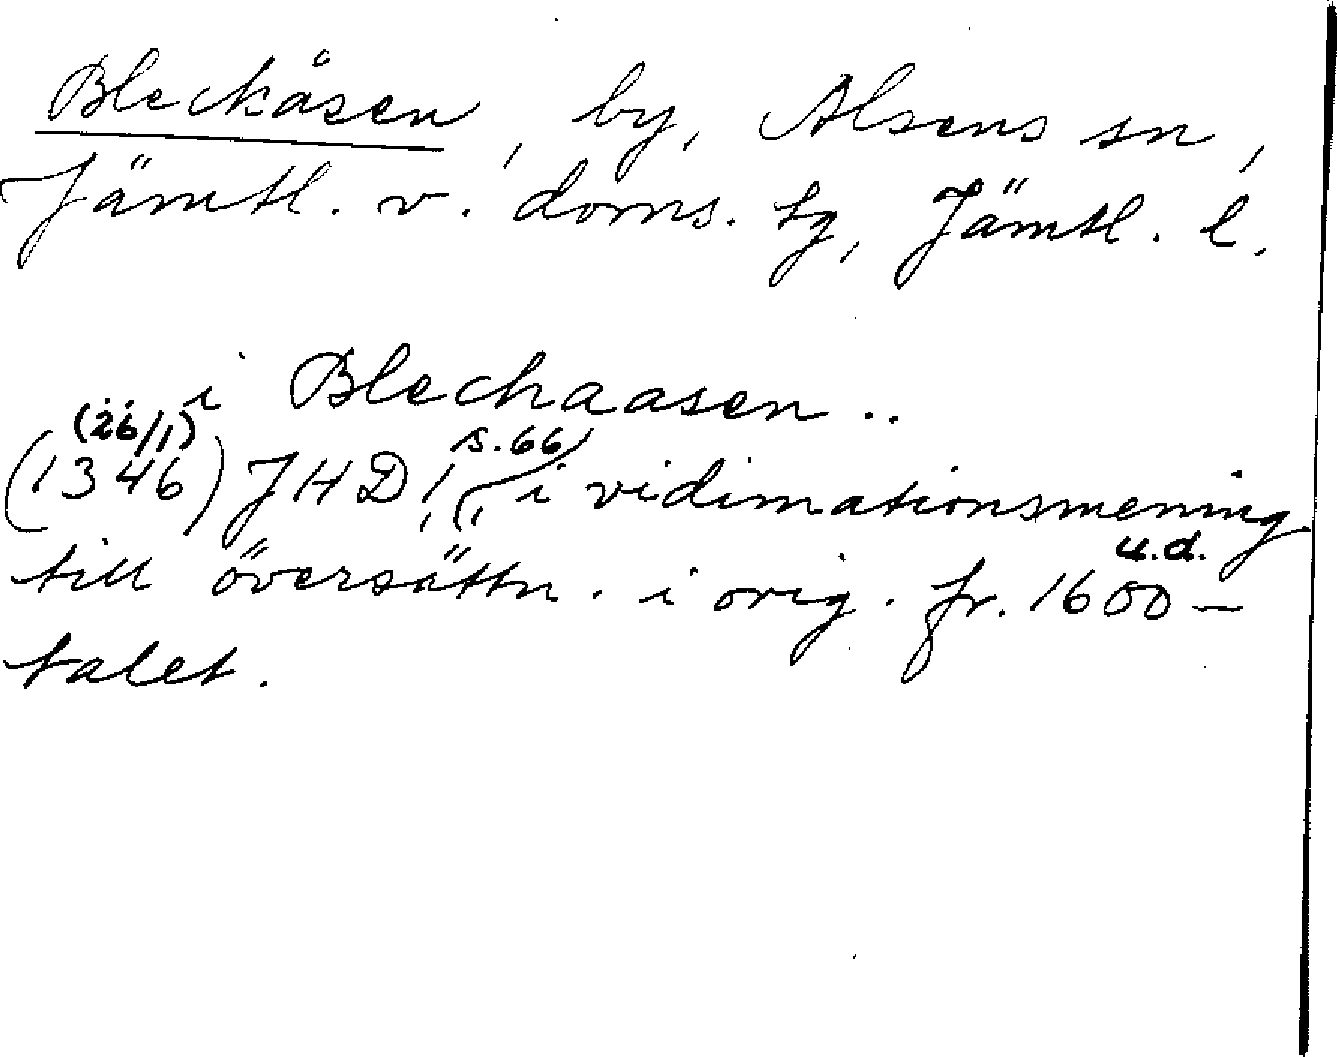 Bleckåsen, by, Alsens sn,
Jämtl. v. doms. tg, Jämtl. l.
i Blechaasen..
(26/1)
s. 66
(1346) JHD 1, (, i vidimationsmening
u.d.
till översättn. i orig. fr. 1600-
talet.